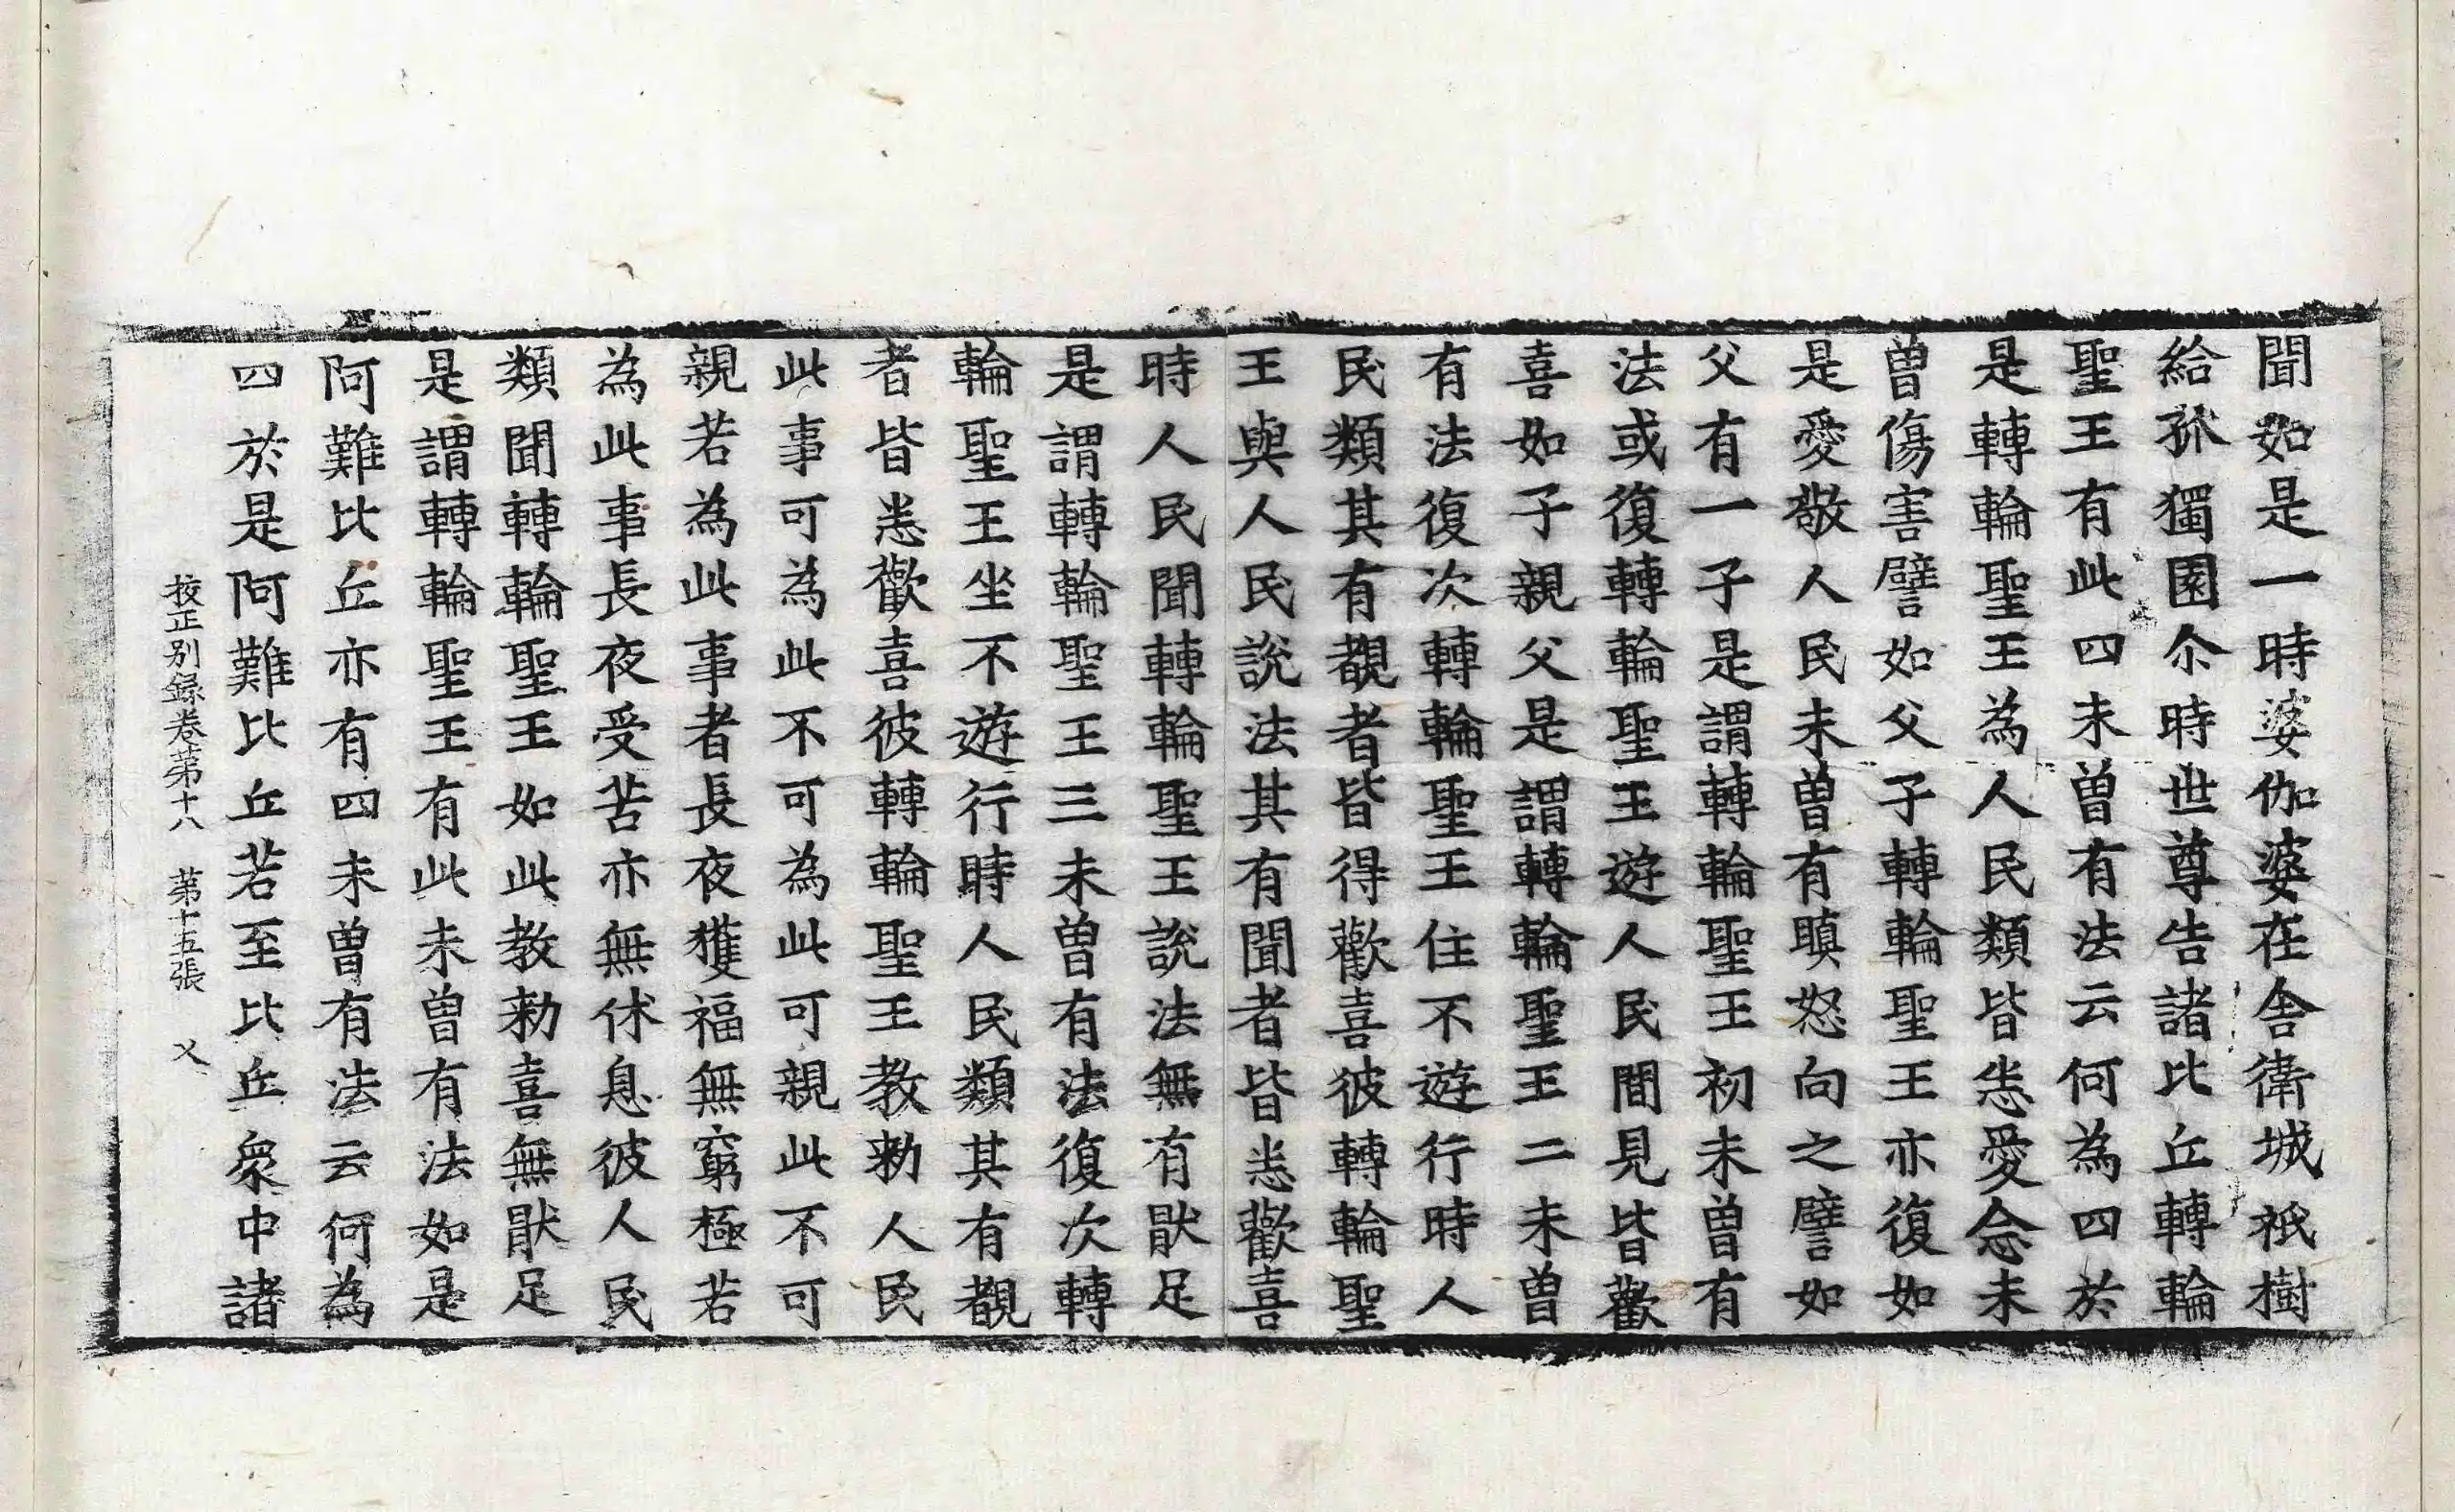 聞如是一時婆伽婆在舍衛城祇樹
給孤獨園尒時世尊告諸比丘轉輪
聖王有此四未曾有法云何為四於
是轉輪聖王為人民類皆悉愛念未
曾傷害譬如父子轉輪聖王亦復如
是愛敬人民未曾有瞋怒向之譬如
父有一子是謂轉輪聖王初未曾有
法或復轉輪聖王遊人民間見皆歡
喜如子親父是謂轉輪聖王二未曾
有法復次轉輪聖王住不遊行時人
民類其有覩者皆得歡喜彼轉輪聖
王與人民說法其有聞者皆悉歡喜
時人民聞轉輪聖王說法無有猒足
是謂轉輪聖王三未曾有法復次轉
輪聖王坐不遊行時人民類其有覩
者皆悉歡喜彼轉輪聖王教勑人民
此事可為此不可為此可親此不可
親若為此事者長夜獲福無窮極若
為此事長夜受苦亦無休息彼人民
類聞轉輪聖王如此教勑喜無猒足
是謂轉輪聖王有此未曾有法如是
阿難比丘亦有四未曾有法云何為
四於是阿難比丘若至比丘眾中諸
校正別録卷第十八　第十五張